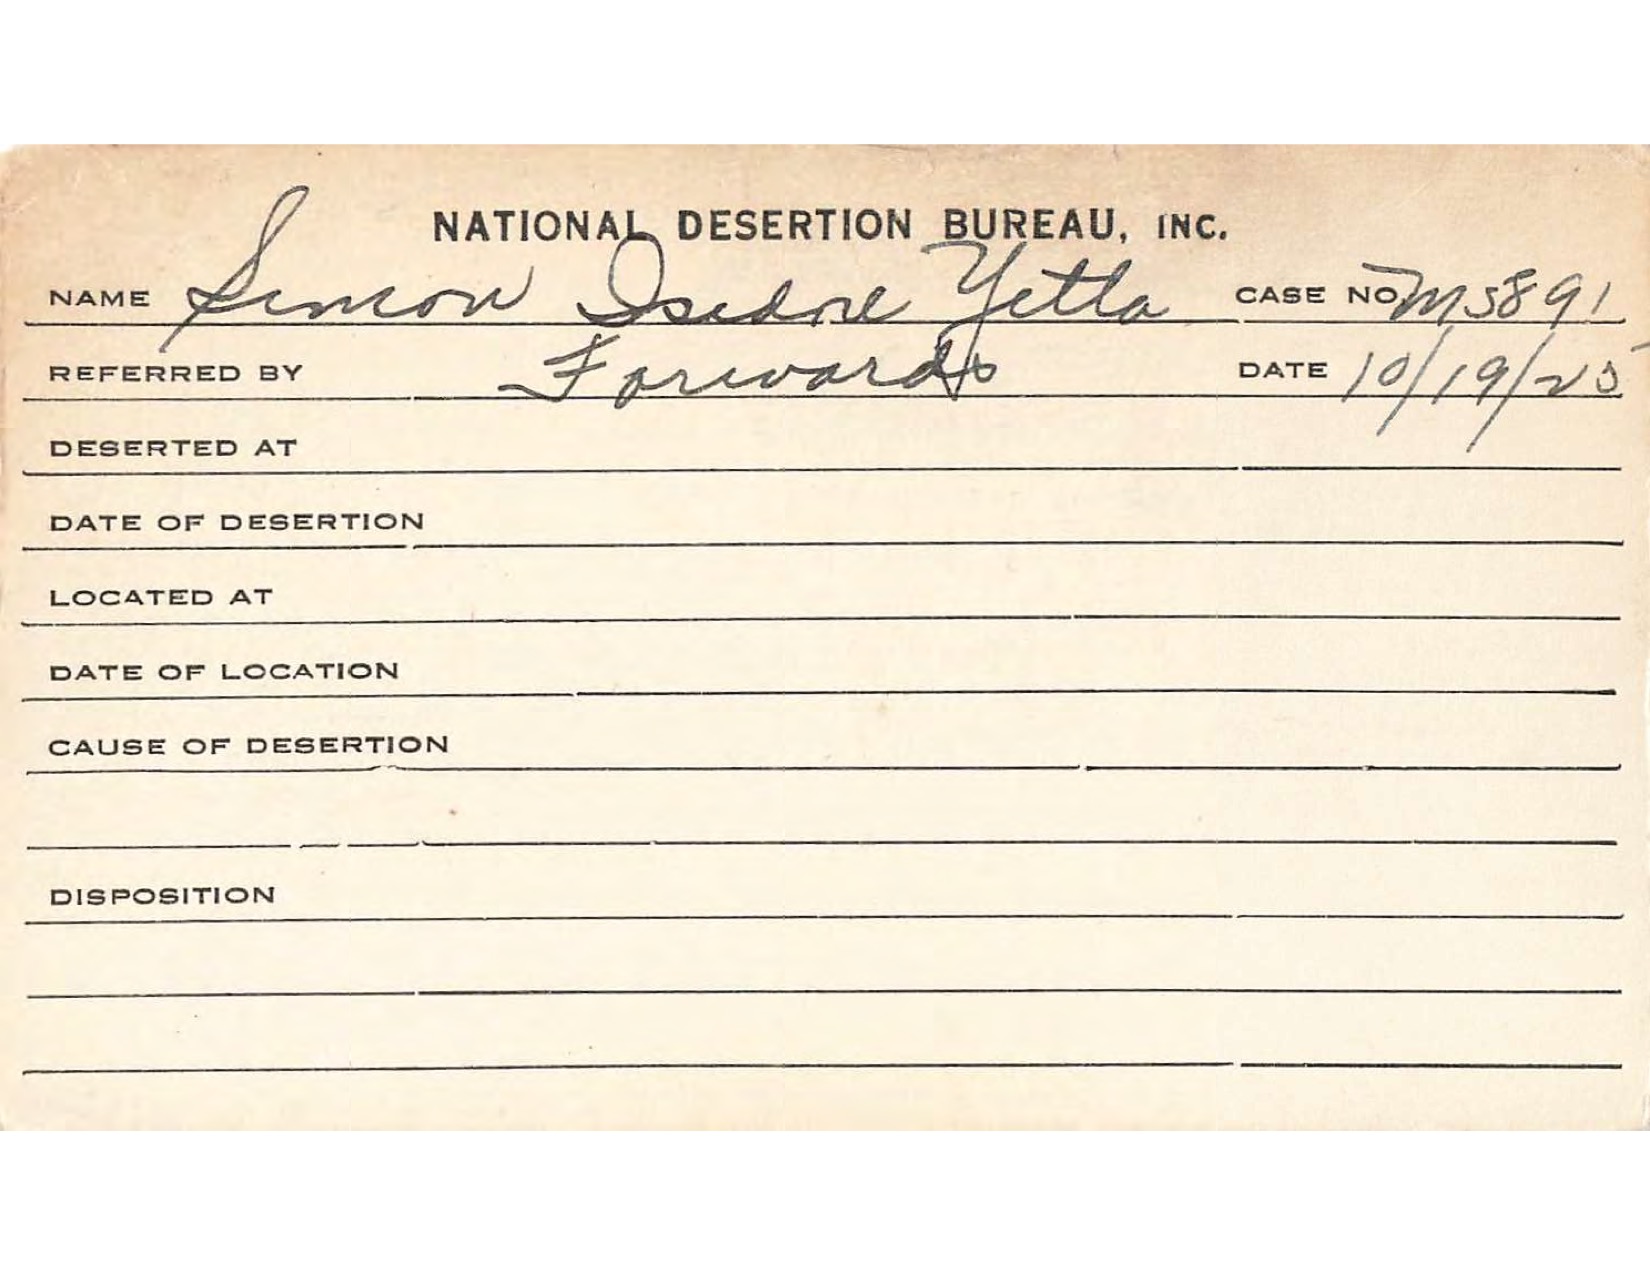 NATIONAL DESERTION BUREAU, INC.
NAME Simon Isidore Yetta CASE NO. M5891
REFERRED BY Forwards DATE 10/19/25
DESERTED AT
DATE OF DESERTION
LOCATED AT
DATE OF LOCATION
CAUSE OF DESERTION
DISPOSITION